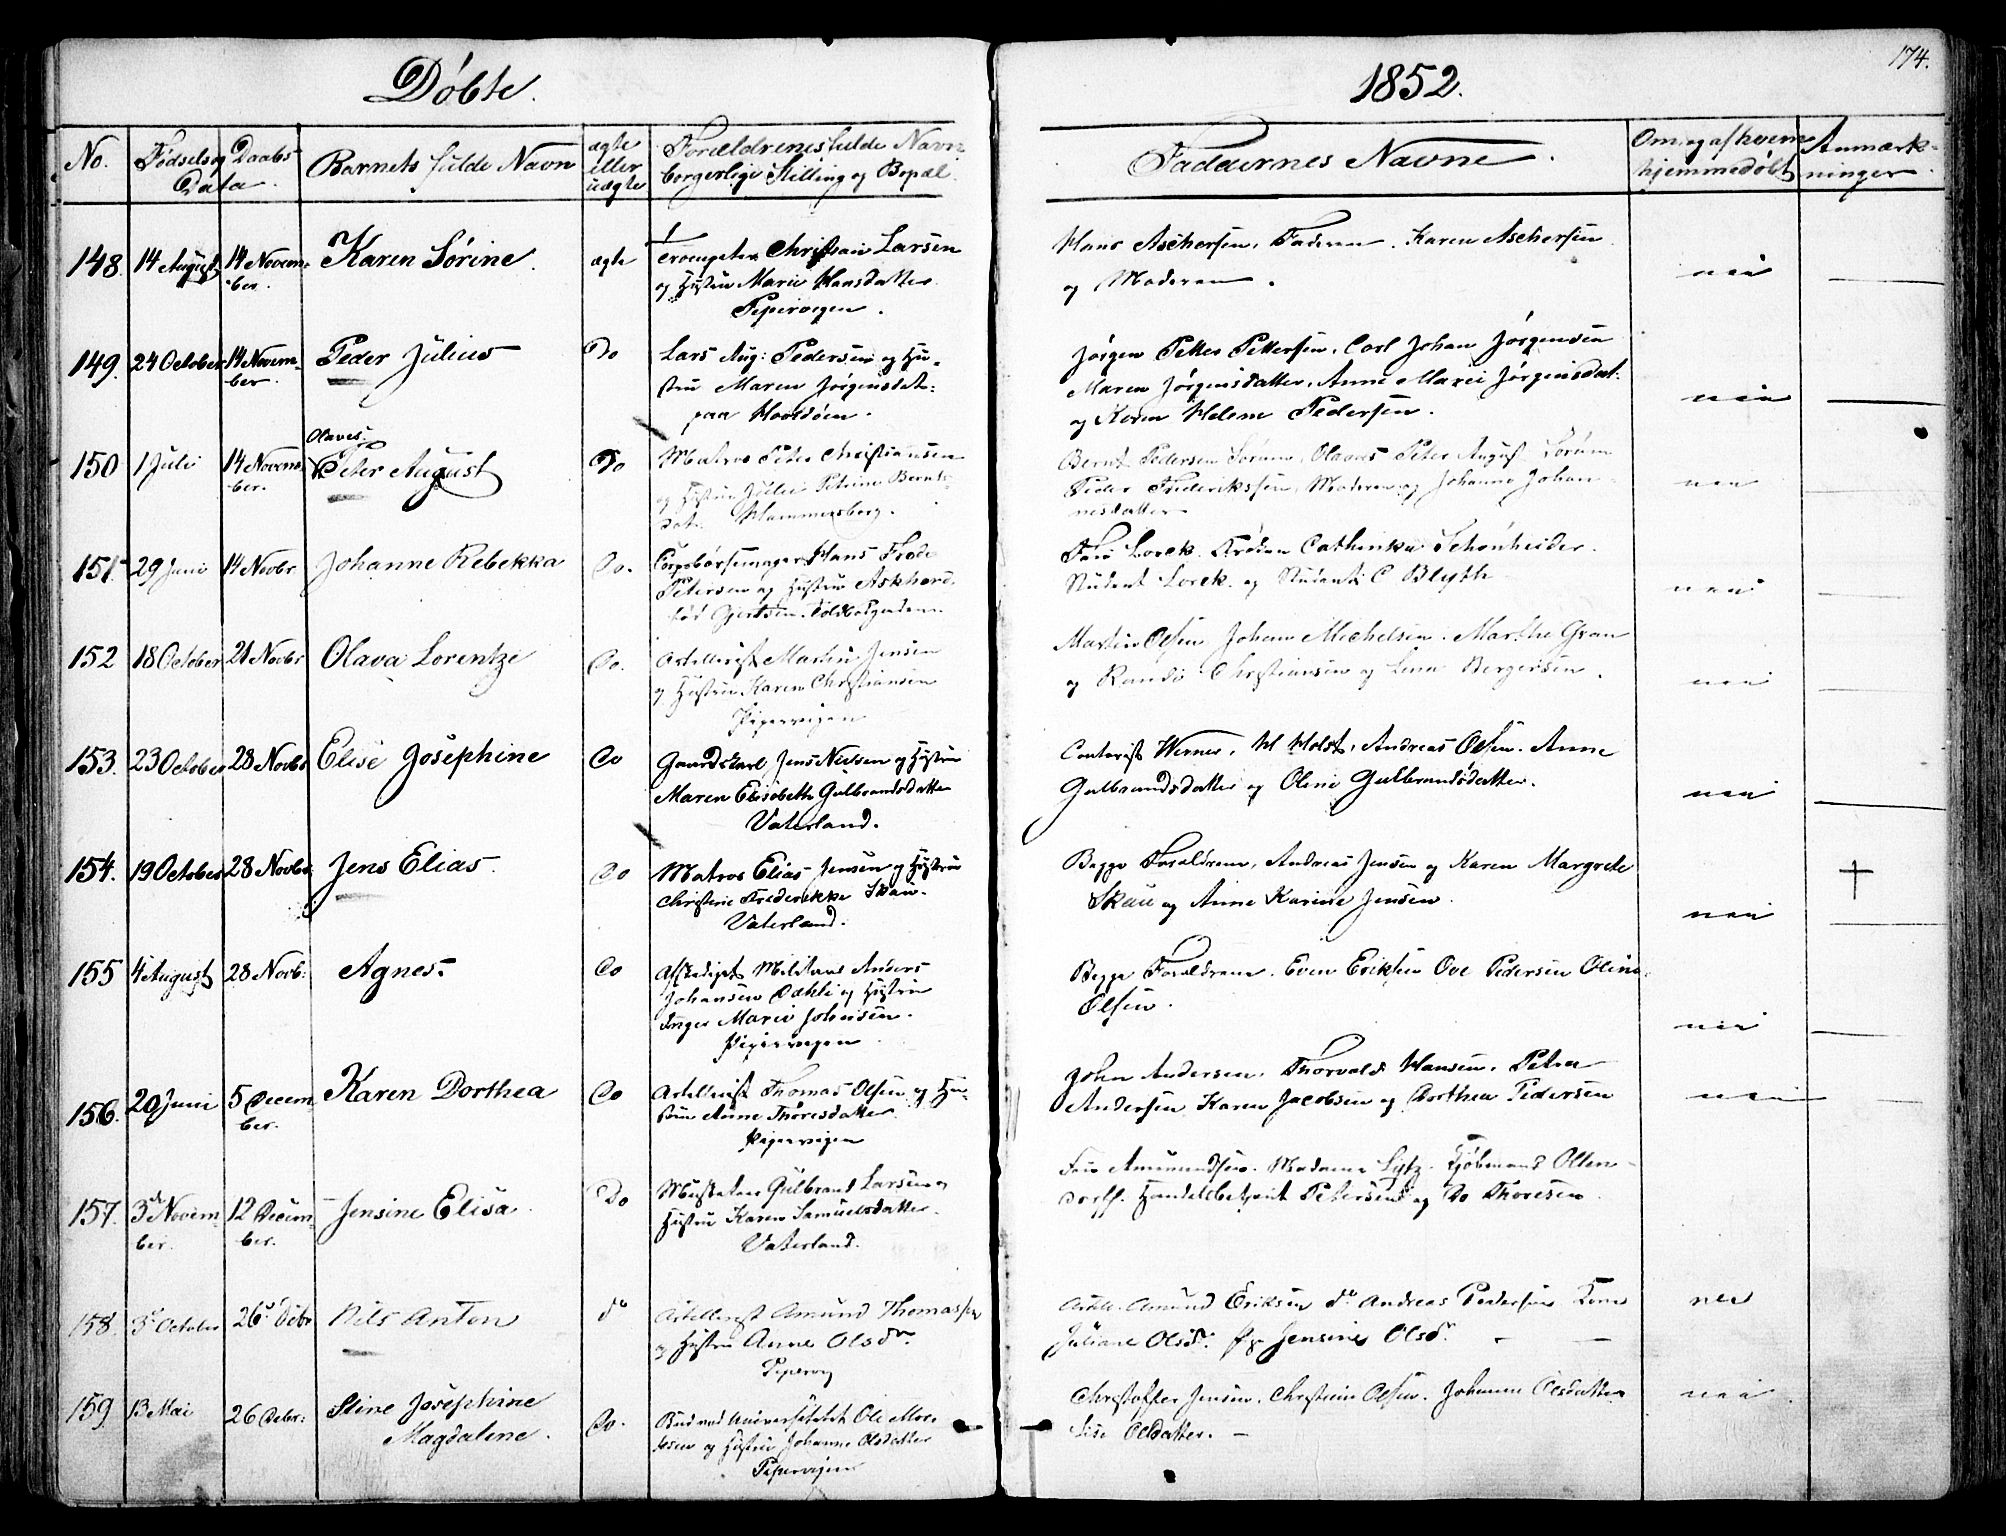 Døbte.
No.
Fødsels og Daabs
Data.
Barnets fulde Navn
ægte
eller
uægte
Forældrenes fulde Navn
borgerlige Stilling og Bopæl.
148. 14 August 14 Novem-
ber.
Karen Sørine.
ægte
Trompeter Christian Larsen
og Hustru Marie Hansdatter
Pipervigen.
149. 24 October 14 Novem-
ber.
Peder Julius
Do
Lars Aug: Pedersen og Hu-
stru Maren Jørgensdat:
paa Hovedøen.
150 1 Juli 14 Novem-
ber.
Olaves
Peter August
Do
Matros Peter Christiansen
og Hustru Julie Petrine Bernts-
dat. Hammersborg.
151. 29 Juni 14 Novbr
Johanne Rebekka
Do.
Corpsbøssemager Hans Fredr
Petersen og Hustru
Gjertsen. Toldbodgaden
152 18 October 21 Novbr
Olava Lorentze
Do.
Artillerist Martin Jensen
og Hustru Karen Christiansen
Pipervigen
153. 23 October 28 Novbr
Elise Josephine
Do
Gaardskarl Jens Nielsen og Hustru
Maren Elisabeth Gulbrandsdatter
Vaterland.
154. 19 October 28 Novbr.
Jens Elias.
Do
Matros Elias Jensen og Hustru
Christine Frederikke Skau.
Vaterland.
155 4 August 28 Novb:
Agnes.
Do
Afskediget Militair Anders
Johansen Dahli og Hustru
Inger Marie Johnsen.
Pipervigen
156. 20 Juni 5 Decem
ber.
Karen Dorthea
Do
Artillerist Thomas Olsen og Hu-
stru Anne Thoresdatter
Pipervigen
157. 3 Novem-
ber.
12 Decem-
ber.
Jensine Elisa
Do
Musketeer Gulbrand Larsen og
Hustru Karen Samuelsdatter.
Vaterland.
158. 3 October 26 Debr
Nils Anton
do
Artillerist Amund Thomassen
og Hustru Anne Olsdr.
Piperv
159. 13 Mai 26 Debr:
Stine Josephine
Magdalene.
Do.
Bud ved Universitetet Ole Mor-
tesen og Hustru Johanne Olsdatter
Pipervigen
1852.
174.
Faddernes Navne.
Om og af hvem
hjemmedøbt
Anmærk-
ninger.
Hans Aschersen, Faderen. Karen Aschersen
og Moderen.
nei
Jørgen Petter Pettersen, Carl Johan Jørgensen
Maren Jørgensdatter, Anne Marie Jørgensdat.
og Karen Helene Pedersen.
nei
Bernt Pedersen Sørum, Olaves Peter August Sørum
Peder Frederiksen, Moderen og Johanne Johan-
nesdatter
nei
Fru Lorck. Frøken Cathinka Schønheider.
Student Lorck. og Student C Blyth
nei
Martin Olsen Johan Michelsen. Marthe Gran
og Christiansen og Lina Bergersen.
nei
Contorist Werner, H Holst, Andreas Olsen. Anne
Gulbrandsdatter og Oline Gulbrandsdatter.
nei
Begge Forældrene, Andreas Jensen og Karen Margrete
Skau og Anne Karine Jensen.
nei
†
Begge Forældrene. Even Eriksen Ove Pedersen Oline
Olsen.
nei
John Andersen. Thorvald Hansen. Petra
Andersen Karen Jacobsen og Dorthea Pedersen
nei
Fru Amundsen. Madame Lytz. Kjøbmand Olten-
dorff. Handelsbetjent Petersen og Do Thoresen
Artil. Amund Eriksen do Andreas Pedersen Kone
Juliane Olsdr. pg Jensine Olsdr.
nei
Christoffer Jensen. Christian Olsen. Johanne Olsdatter
Lise Olsdatter.
nei